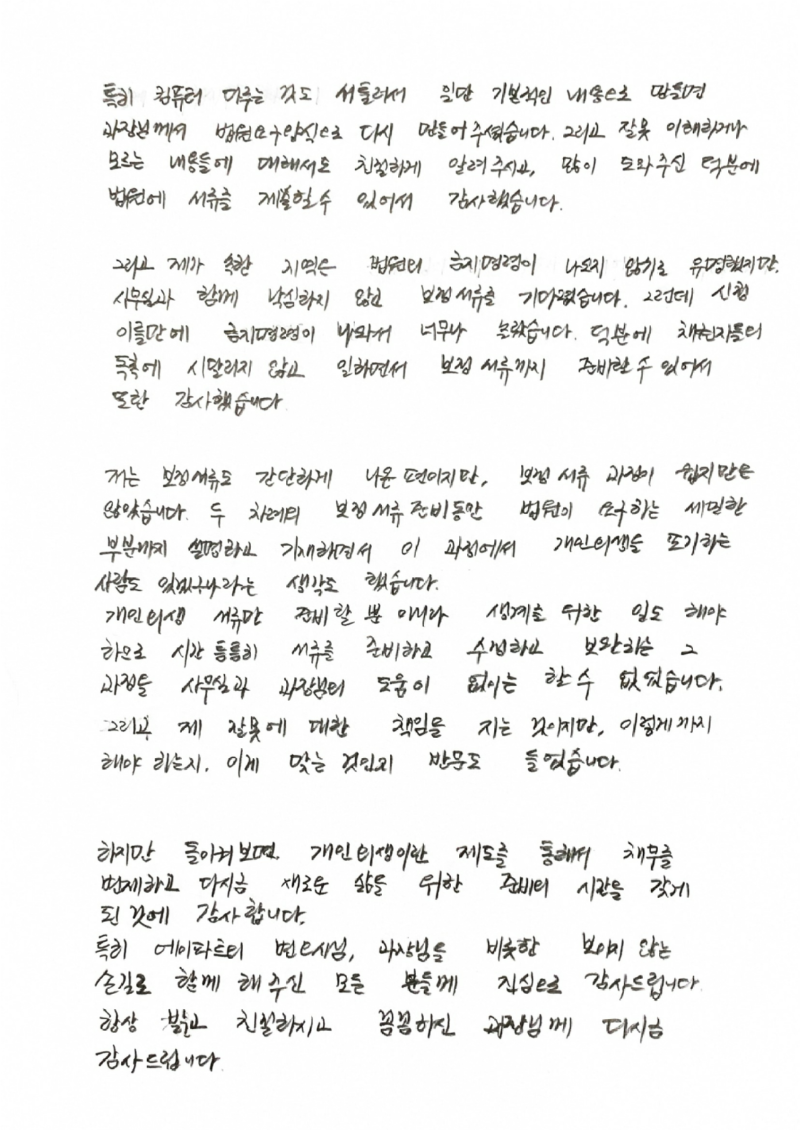 특히 컴퓨터 다루는 것도 서툴러서 일단 기본적인 내용으로 만들면
과장님께서 법원요구양식으로 다시 만들어 주셨습니다. 그리고 잘못 이해하거나
모르는 내용들에 대해서도 친절하게 알려 주시고, 많이 도와주신 덕분에
법원에 서류를 제출할 수 있어서 감사했습니다.
그리고 제가 속한 지역은 법원의 금지명령이 나오지 않기로 유명했지만,
사무실과 함께 낙심하지 않고 보정서류를 기다렸습니다. 그런데 신청
이틀만에 금지명령이 나와서 너무나 놀랐습니다. 덕분에 채권자들의
독촉에 시달리지 않고 일하면서 보정 서류까지 준비할 수 있어서
또한 감사했습니다.
저는 보정서류도 간단하게 나온 편이지만, 보정 서류 과정이 쉽지만은
않았습니다. 두 차례의 보정 서류 준비동안 법원이 요구하는 세밀한
부분까지 설명하고 기재하면서 이 과정에서 개인회생을 포기하는
사람도 있겠구나라는 생각도 했습니다.
개인회생 서류만 준비할 뿐 아니라 생계를 위한 일도 해야
하므로 시간 틈틈히 서류를 준비하고 수정하고 보완하는 그
과정을 사무실과 과장님의 도움이 없이는 할 수 없었습니다.
그리고 제 잘못에 대한 책임을 지는 것이지만, 이렇게까지
해야 하는지. 이게 맞는 것인지 반문도 들었습니다.
하지만 돌아켜보면. 개인회생이란 제도를 통해서 채무를
변제하고 다시금 새로운 삶을 위한 준비의 시간을 갖게
된 것에 감사합니다.
특히 에이파트의 변호사님, 과장님을 비롯한 보이지 않는
손길로 함께 해 주신 모든 분들께 진심으로 감사드립니다.
항상 밝고 친절하시고 꼼꼼하신 과장님께 다시금
감사드립니다.